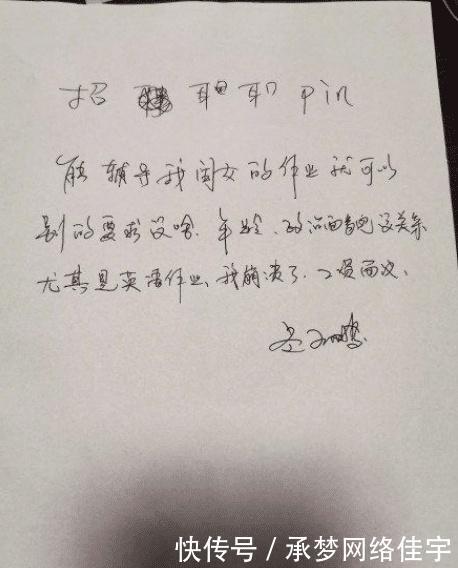 招 耳 职 Pin
能辅导我闺女的作业就可以
别的要求没啥.年龄、政治面貌也没关系
尤其是英语作业、我崩溃了.工资面议.
孟鹏
快传号/承梦网络佳宇